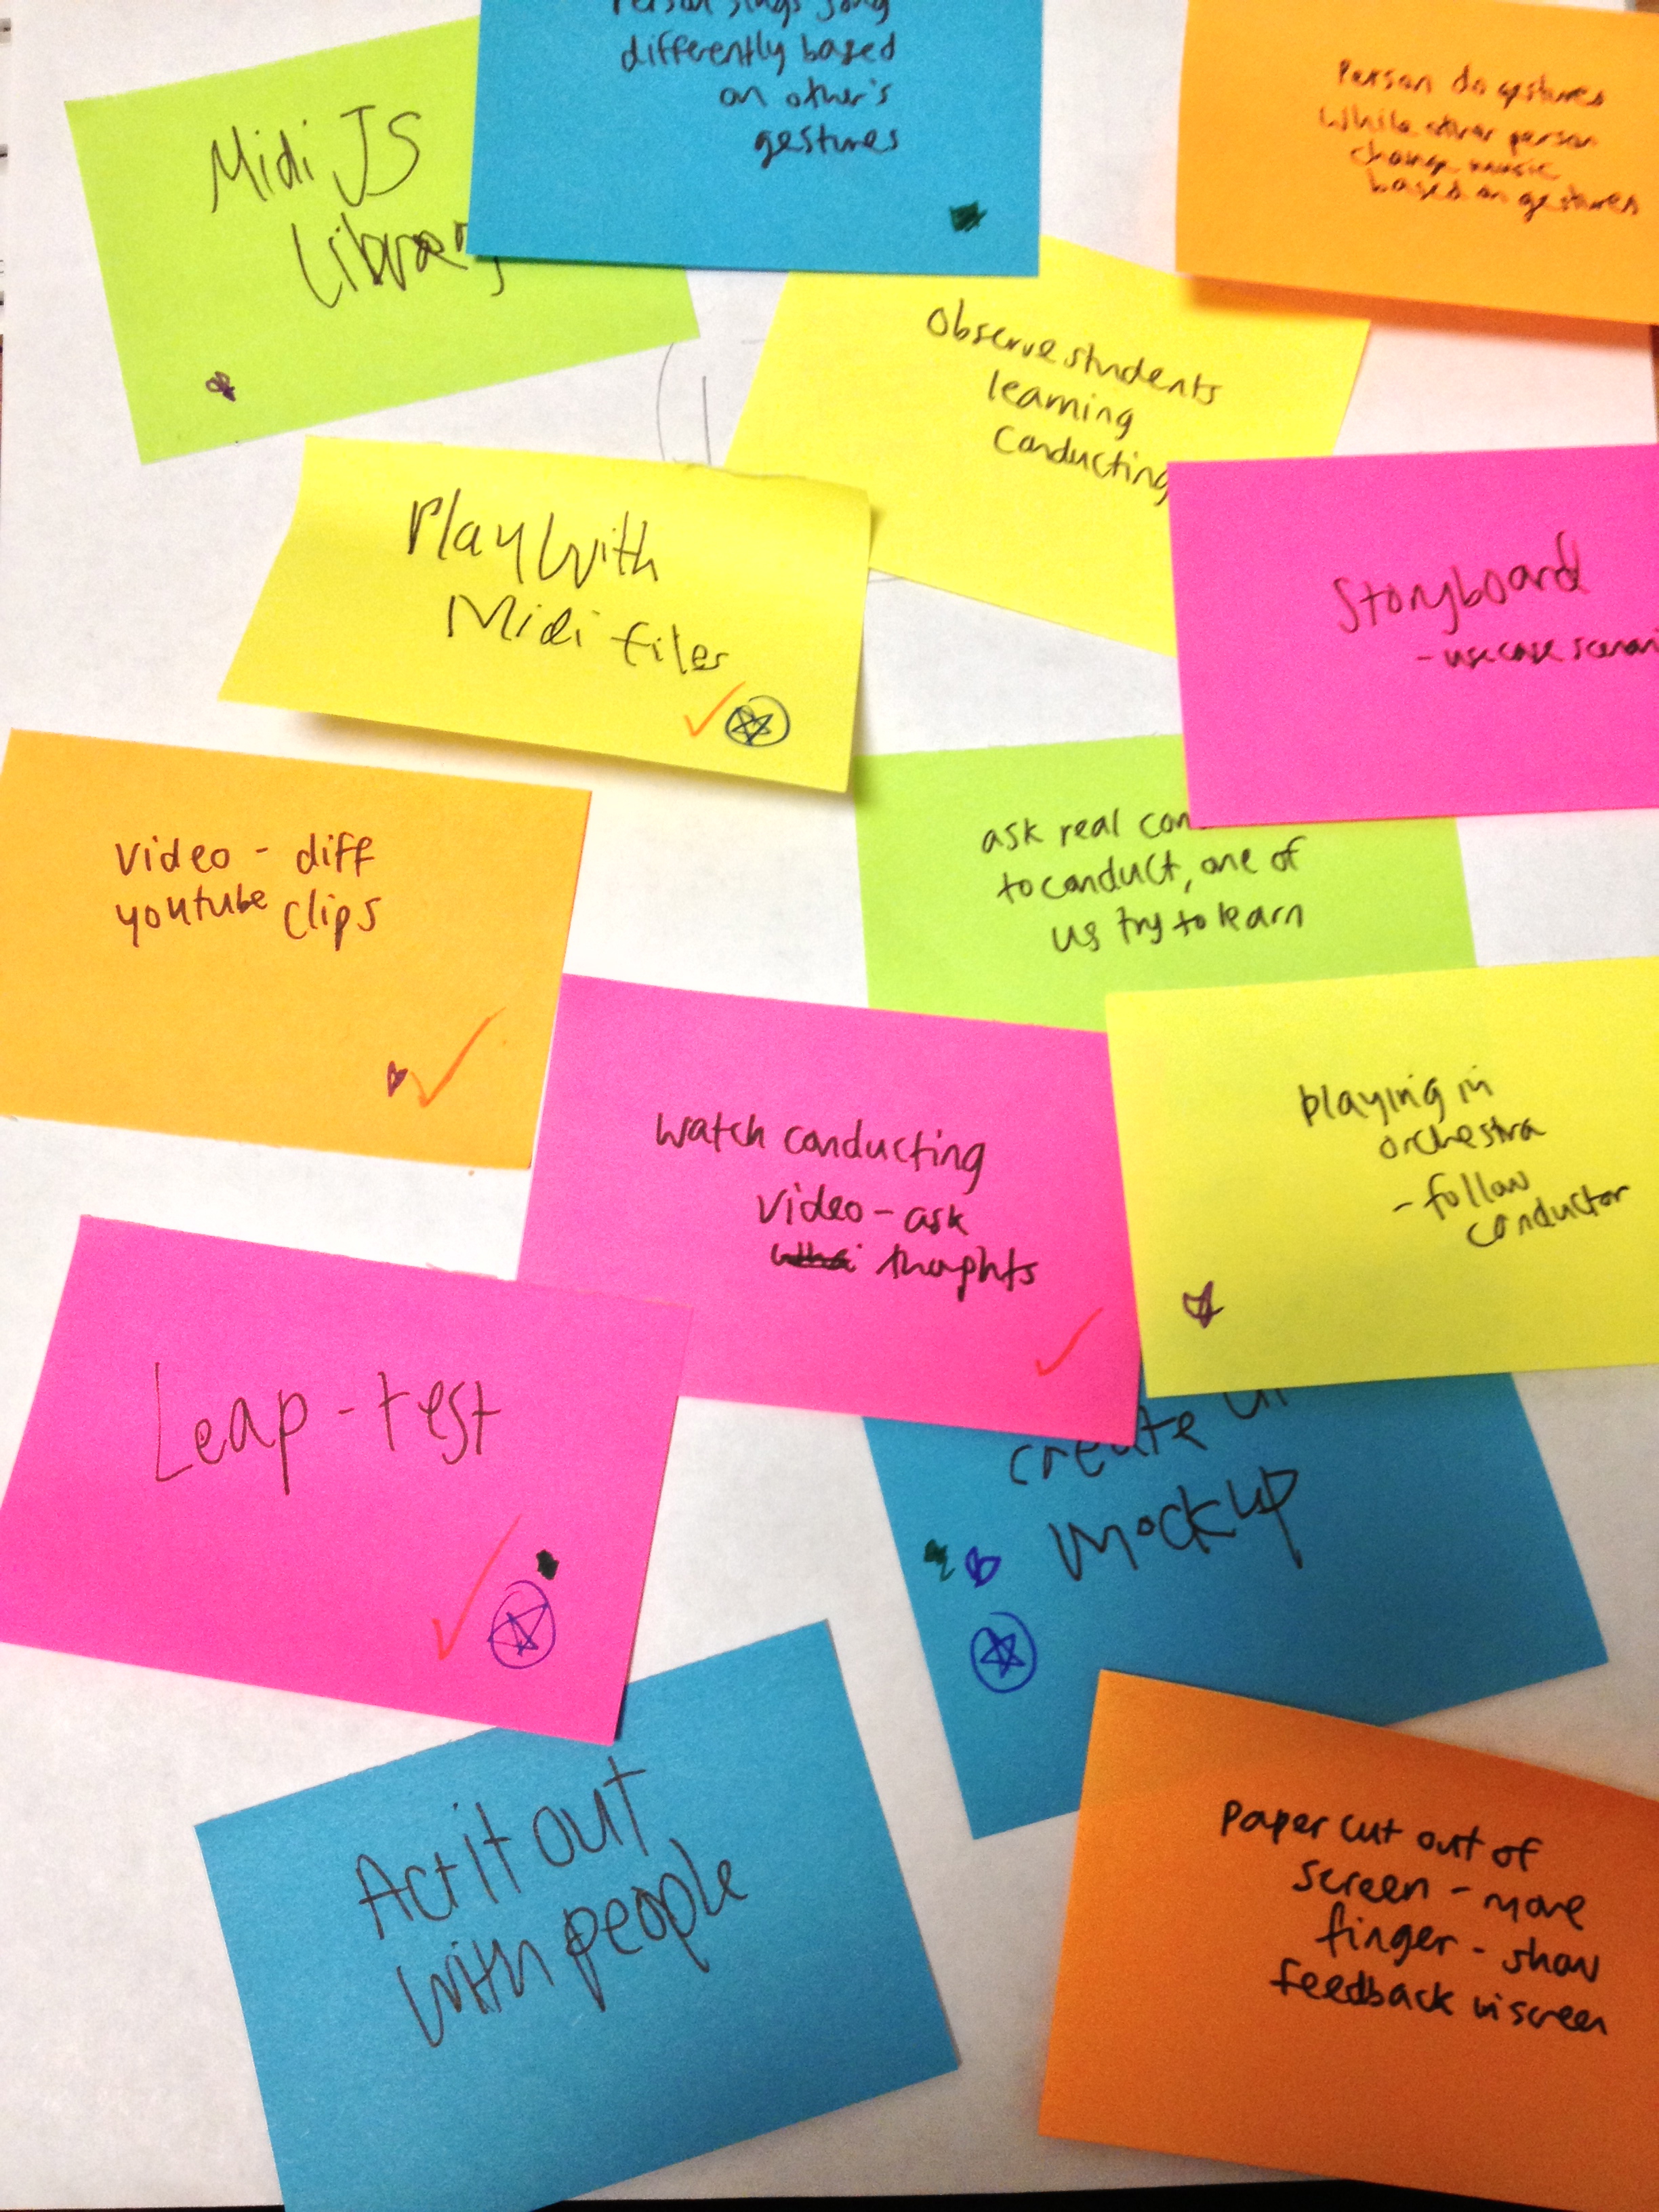 Person sings song
differently based
on other's
gestures
Person do gestures
While other person
change music
based on gestures
Midi JS
Library
Observe students
learning
Conducting
Play With
Midi files
Storyboard
- use case scenari
video - diff
youtube clips
ask real con
to conduct, one of
us try to learn
watch conducting
video - ask
thoghts
playing in
orchestra
- follow
conductor
Leap - test
create UI
mockup
Act it out
with people
paper cut out of
screen - move
finger - show
feedback in screen